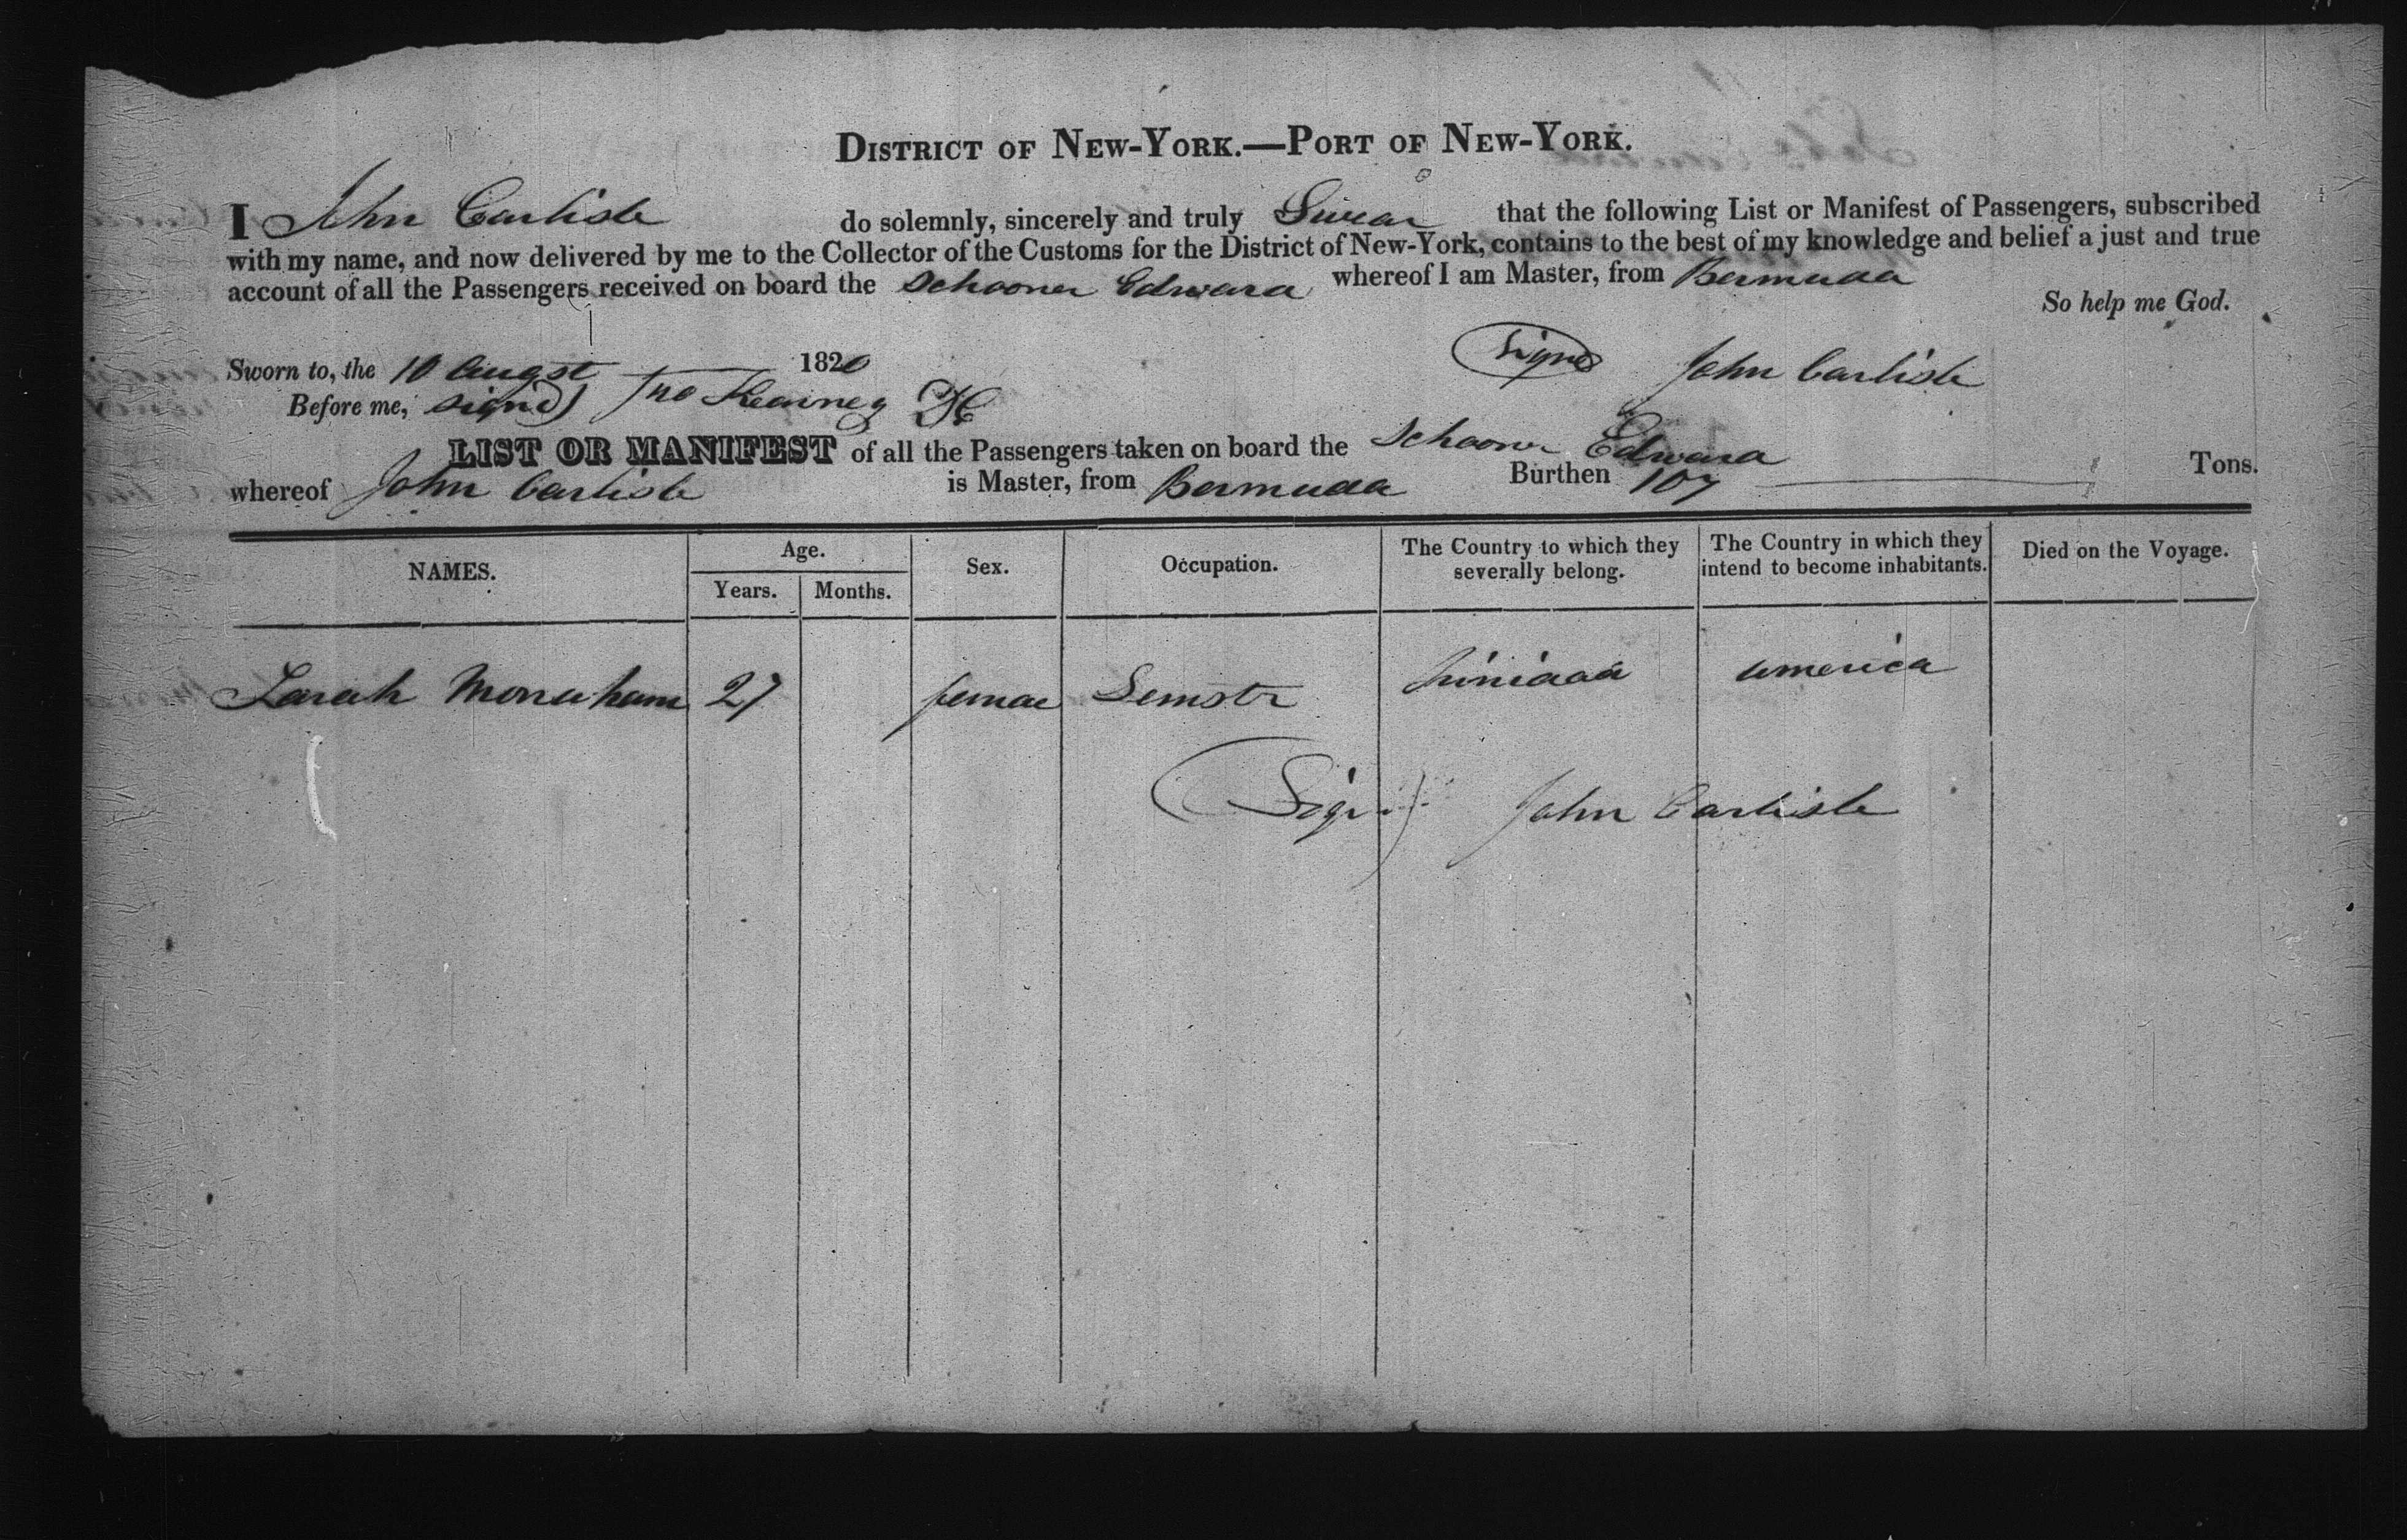 DISTRICT OF NEW-YORK.—PORT OF NEW-YORK.
I John Carlisle do solemnly, sincerely and truly Swear that the following List or Manifest of Passengers, subscribed
with my name, and now delivered by me to the Collector of the Customs for the District of New-York, contains to the best of my knowledge and belief a just and true
account of all the Passengers received on board the Schooner Edward whereof I am Master, from Bermuda
So help me God.
Sworn to, the 10 Augst 1820 (Signed) John Carlisle
Before me, signed) Jno Kearney
LIST OR MANIFEST of all the Passengers taken on board the Schooner Edward
whereof John Carlisle is Master, from Bermuda Burthen 107 Tons.
NAMES. Age. Sex. Occupation. The Country to which they severally belong. The Country in which they intend to become inhabitants. Died on the Voyage.
Years. Months.
Sarah Monaham 27 female Semstr Trinidad america
(Signd) John Carlisle